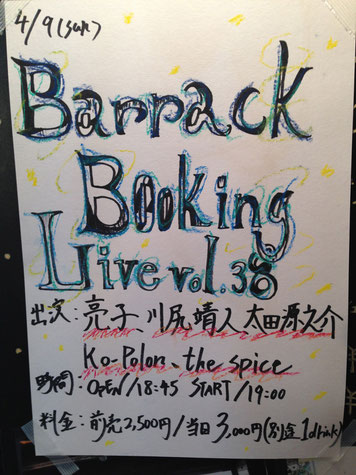 4/9(sun)
Barrack
Booking
Live vol.38
出演:亮子、川尻靖人 太田源之介
Ko-Polon、the spice
時間:OPEN/18:45 START/19:00
料金:前売2,500円/当日3,000円(別途1drink)